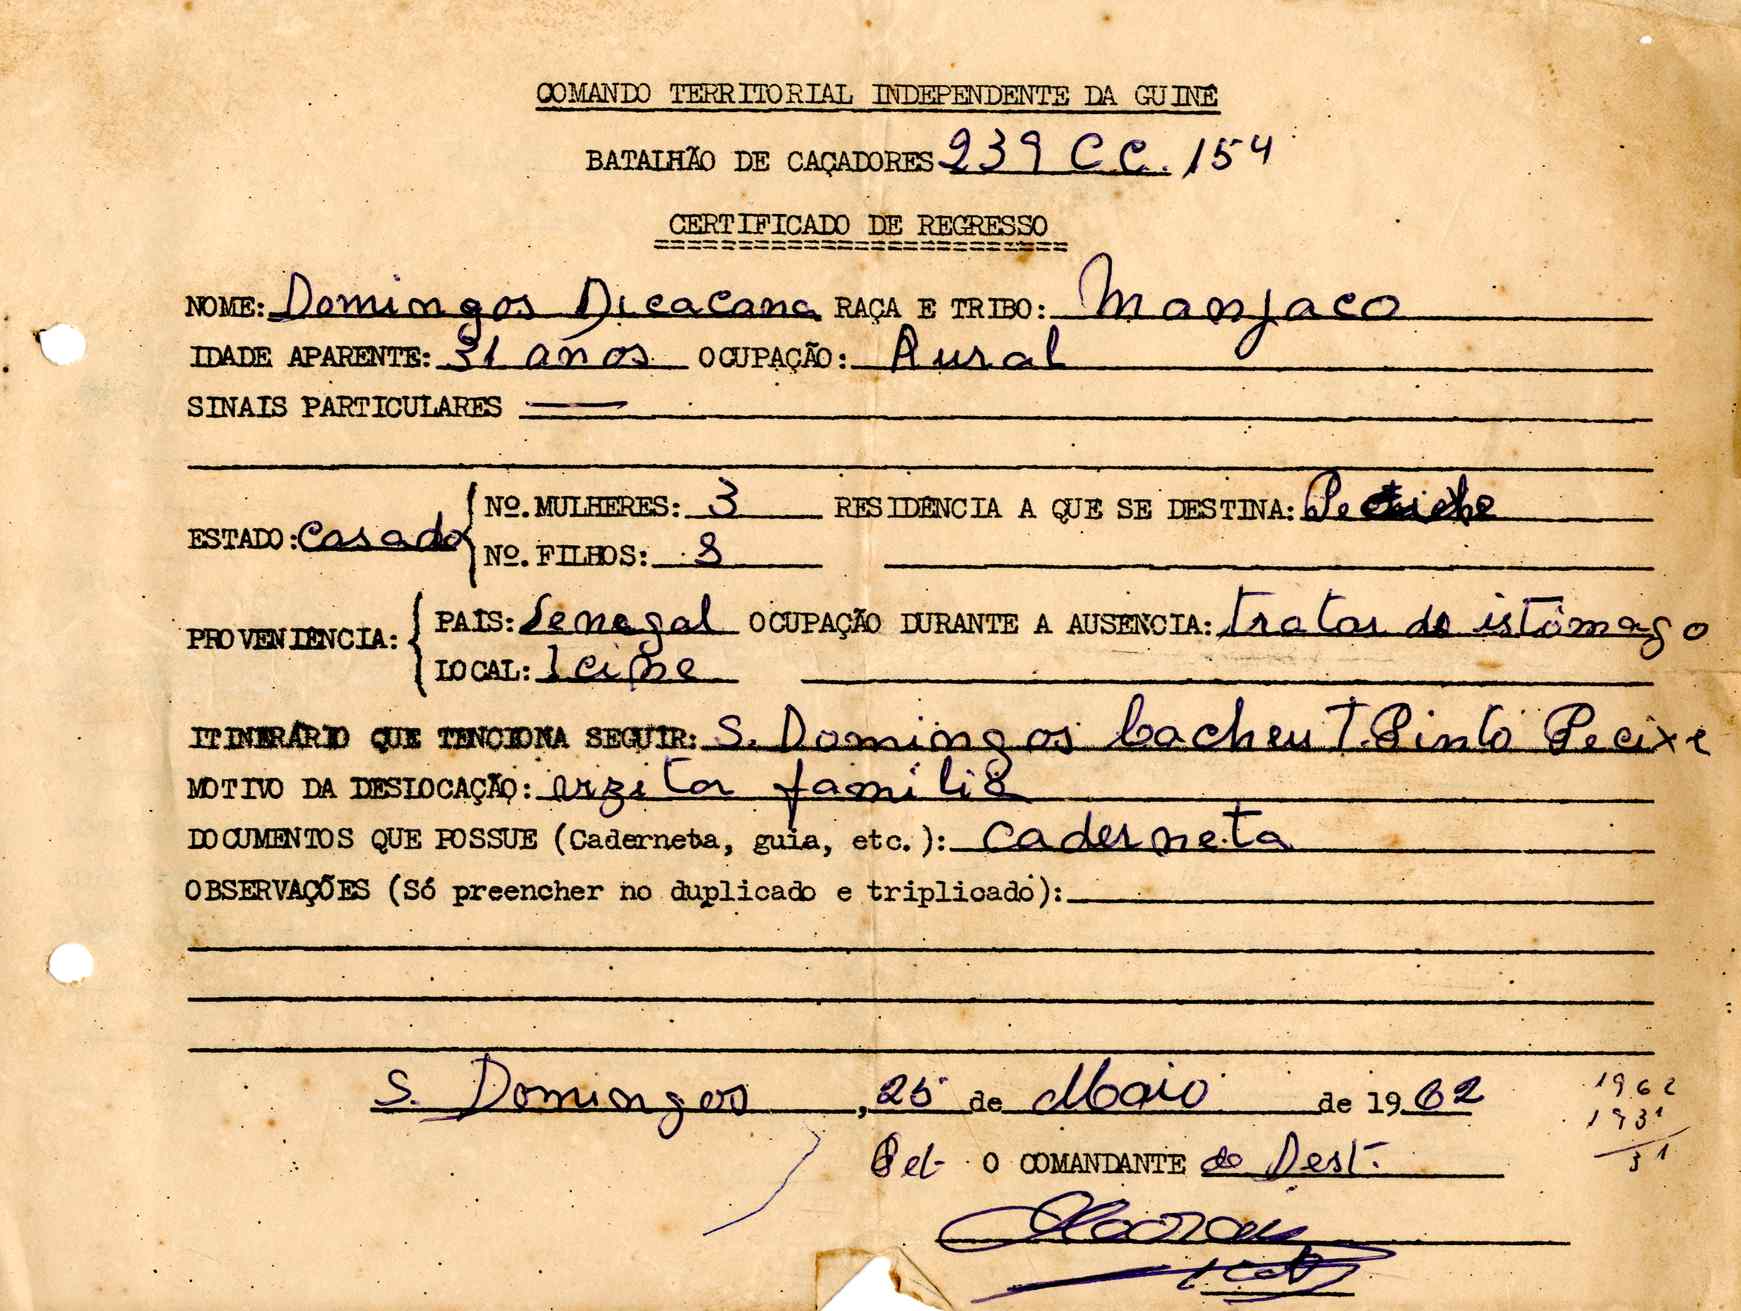 COMANDO TERRITORIAL INDEPENDENTE DA GUINÉ
BATALHÃO DE CAÇADORES 239 C C. 154
CERTIFICADO DE REGRESSO
NOME: Domingos Dicacana RAÇA E TRIBO: Manjaco
IDADE APARENTE: 31 anos OCUPAÇÃO: Rural
SINAIS PARTICULARES —
ESTADO: Casado Nº. MULHERES: 3 RESIDÊNCIA A QUE SE DESTINA:
Nº. FILHOS: 3
PROVENIÊNCIA: PAÍS: Senegal OCUPAÇÃO DURANTE A AUSENCIA: tratar do istômago
LOCAL:
ITINERÁRIO QUE TENCIONA SEGUIR: S. Domingos Cacheu T. Pinto Pecixe
MOTIVO DA DESLOCAÇÃO: vizitar familia
DOCUMENTOS QUE POSSUE (Caderneta, guia, etc.): caderneta
OBSERVAÇÕES (Só preencher no duplicado e triplicado):
S. Domingos, 25 de Maio de 1962
O COMANDANTE do Dest.
1962
1931
31